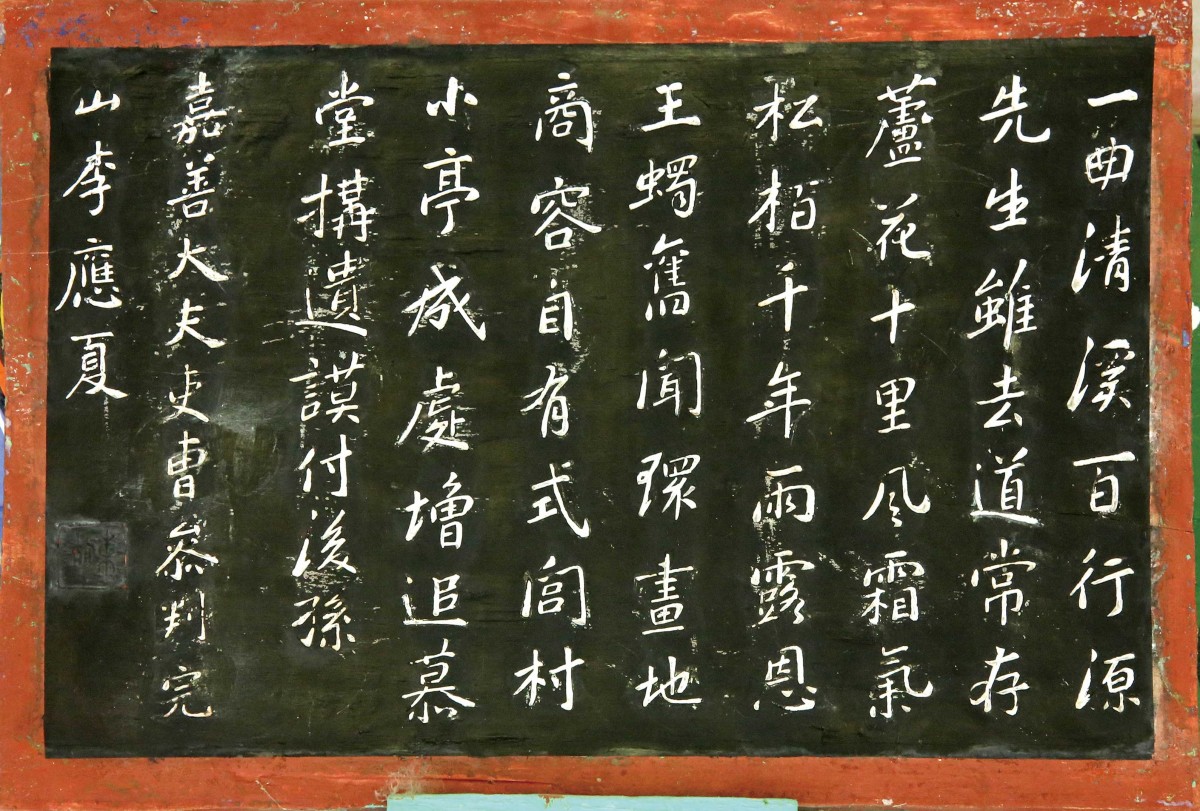 一曲清溪百行源
先生雖去道常存
蘆花十里風霜氣
松栢千年雨露恩
王蠋舊聞環畫地
商容自有式閭村
小亭成處增追慕
堂搆遺謨付後孫
嘉善大夫吏曹叅判完
山李應夏